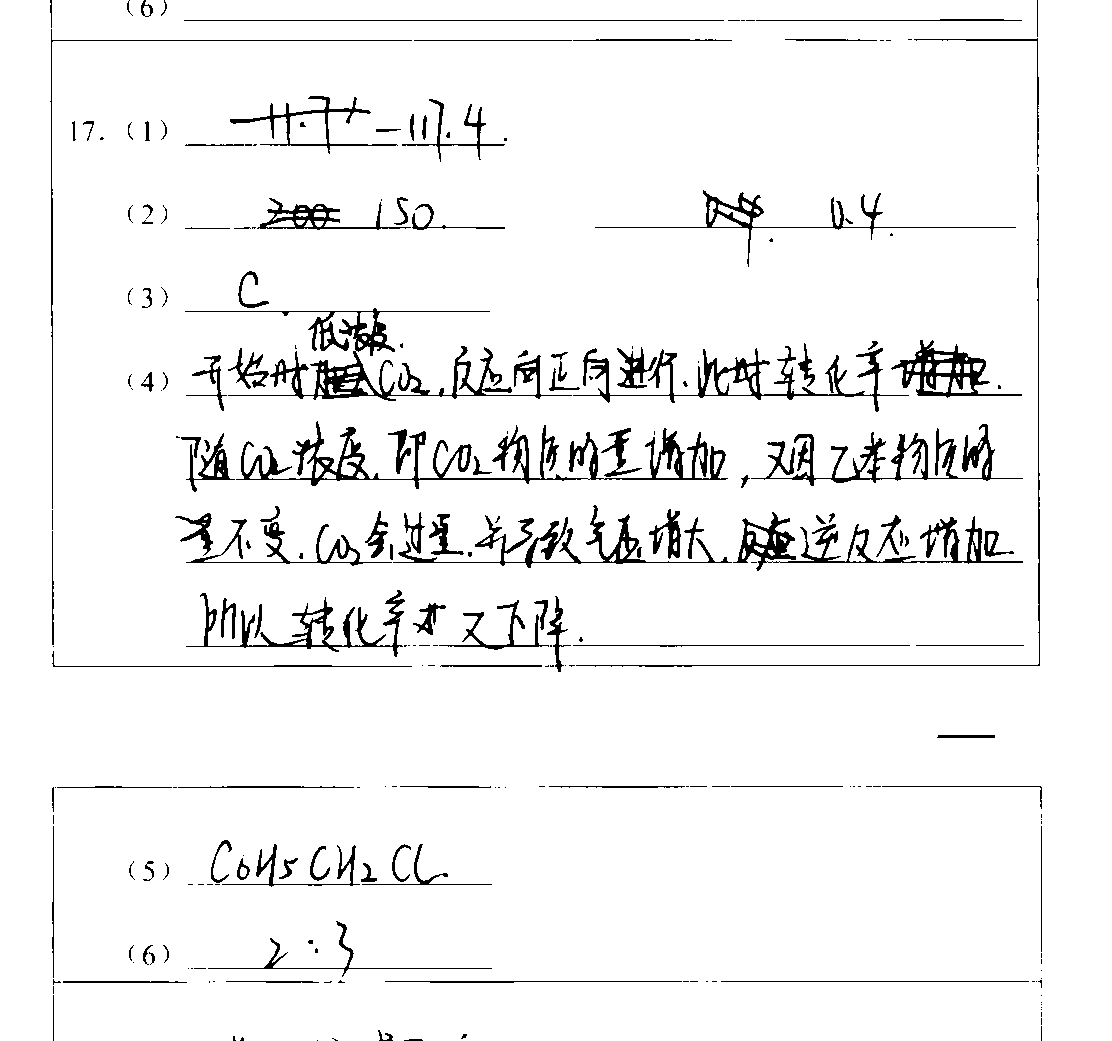 (6)
17. (1) -117.4.
(2) 150. 0.4.
(3) C.
低浓度.
(4) 开始时CO2,反应向正向进行.此时转化率.
随CO2浓度.即CO2物质的量增加,又因乙苯物质的
量不变.CO2会过量.并导致气压增大.逆反应增加
所以转化率又下降.
(5) C6H5CH2Cl.
(6) 2:3